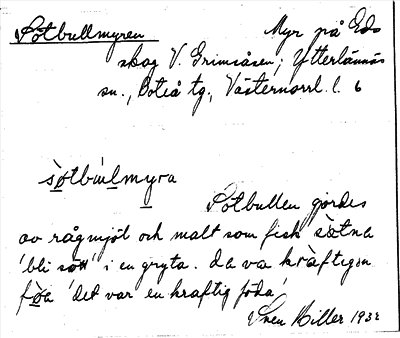 Sötbullmyren Myr på Eds
skog V. Grimsåsen; Ytterlännäs
sn., Boteå tg., Västernorrl. l. 6
sòtbulmyra
Sötbullen gjordes
av rågmjöl och malt som fick sòtna
'bli söt' i en gryta. da va kràftigon
fòa 'det var en kraftig föda'
Sven Hiller 1932